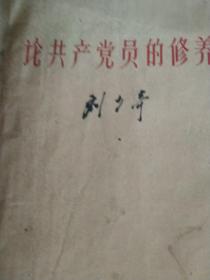 论共产党员的修养
刘少奇